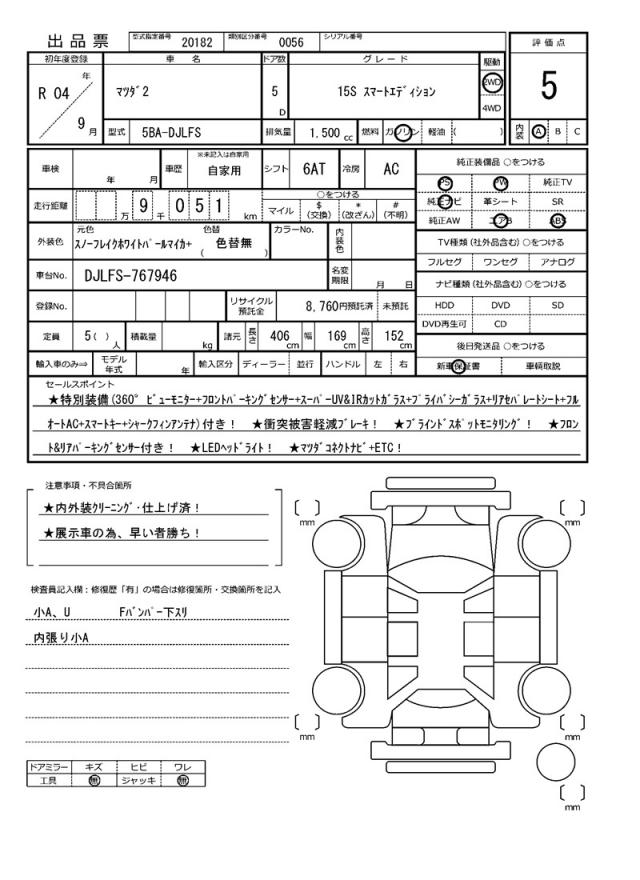 出品票
型式指定番号 20182 類別区分番号 0056 シリアル番号
評価点
初年度登録 車名 ドア数 グレード 駆動
R 04 年 9 月
ﾏﾂﾀﾞ2
5 D
15S ｽﾏｰﾄｴﾃﾞｨｼｮﾝ
2WD
4WD
5
型式 5BA-DJLFS 排気量 1.500 cc 燃料 ガソリン 軽油 ( )
内装 A B C
車検 年 月 車歴 ※未記入は自家用 自家用 シフト 6AT 冷房 AC
純正装備品 ○をつける
PS PW 純正TV
走行距離 万 9 千 051 km
○をつける
マイル $(交換) *(改ざん) #(不明)
純正ナビ 革シート SR
純正AW エアB ABS
外装色 元色 ｽﾉｰﾌﾚｲｸﾎﾜｲﾄﾊﾟｰﾙﾏｲｶ+ 色替 ( 色替無 ) カラーNo. 内装色
TV種類 (社外品含む) ○をつける
フルセグ ワンセグ アナログ
車台No. DJLFS-767946 名変期限 月 日
ナビ種類 (社外品含む) ○をつける
登録No. リサイクル預託金 8,760円預託済 未預託
HDD DVD SD
DVD再生可 CD
定員 5( ) 人 積載量 kg 諸元 長さ 406 cm 幅 169 cm 高さ 152 cm
後日発送品 ○をつける
輸入車のみ⇒ モデル年式 年 輸入区分 ディーラー 並行 ハンドル 左 右
新車保証書 車輌取説
セールスポイント
★特別装備(360° ﾋﾞｭｰﾓﾆﾀｰ+ﾌﾛﾝﾄﾊﾟｰｷﾝｸﾞｾﾝｻｰ+ｽｰﾊﾟｰUV&IRｶｯﾄｶﾞﾗｽ+ﾌﾟﾗｲﾊﾞｼｰｶﾞﾗｽ+ﾘｱｾﾊﾟﾚｰﾄｼｰﾄ+ﾌﾙ
ｵｰﾄAC+ｽﾏｰﾄｷｰ+ｼｬｰｸﾌｨﾝｱﾝﾃﾅ)付き！ ★衝突被害軽減ﾌﾞﾚｰｷ！ ★ﾌﾞﾗｲﾝﾄﾞｽﾎﾟｯﾄﾓﾆﾀﾘﾝｸﾞ！ ★ﾌﾛﾝ
ﾄ&ﾘｱﾊﾟｰｷﾝｸﾞｾﾝｻｰ付き！ ★LEDﾍｯﾄﾞﾗｲﾄ！ ★ﾏﾂﾀﾞｺﾈｸﾄﾅﾋﾞ+ETC！
注意事項・不具合箇所
★内外装ｸﾘｰﾆﾝｸﾞ・仕上げ済！
★展示車の為、早い者勝ち！
検査員記入欄：修復歴「有」の場合は修復箇所・交換箇所を記入
小A、U Fﾊﾞﾝﾊﾟｰ下ｽﾘ
内張り小A
ドアミラー キズ ヒビ ワレ
工具 無 ジャッキ 無
[ ] mm
[ ] mm
[ ] mm
[ ] mm
[ ] mm